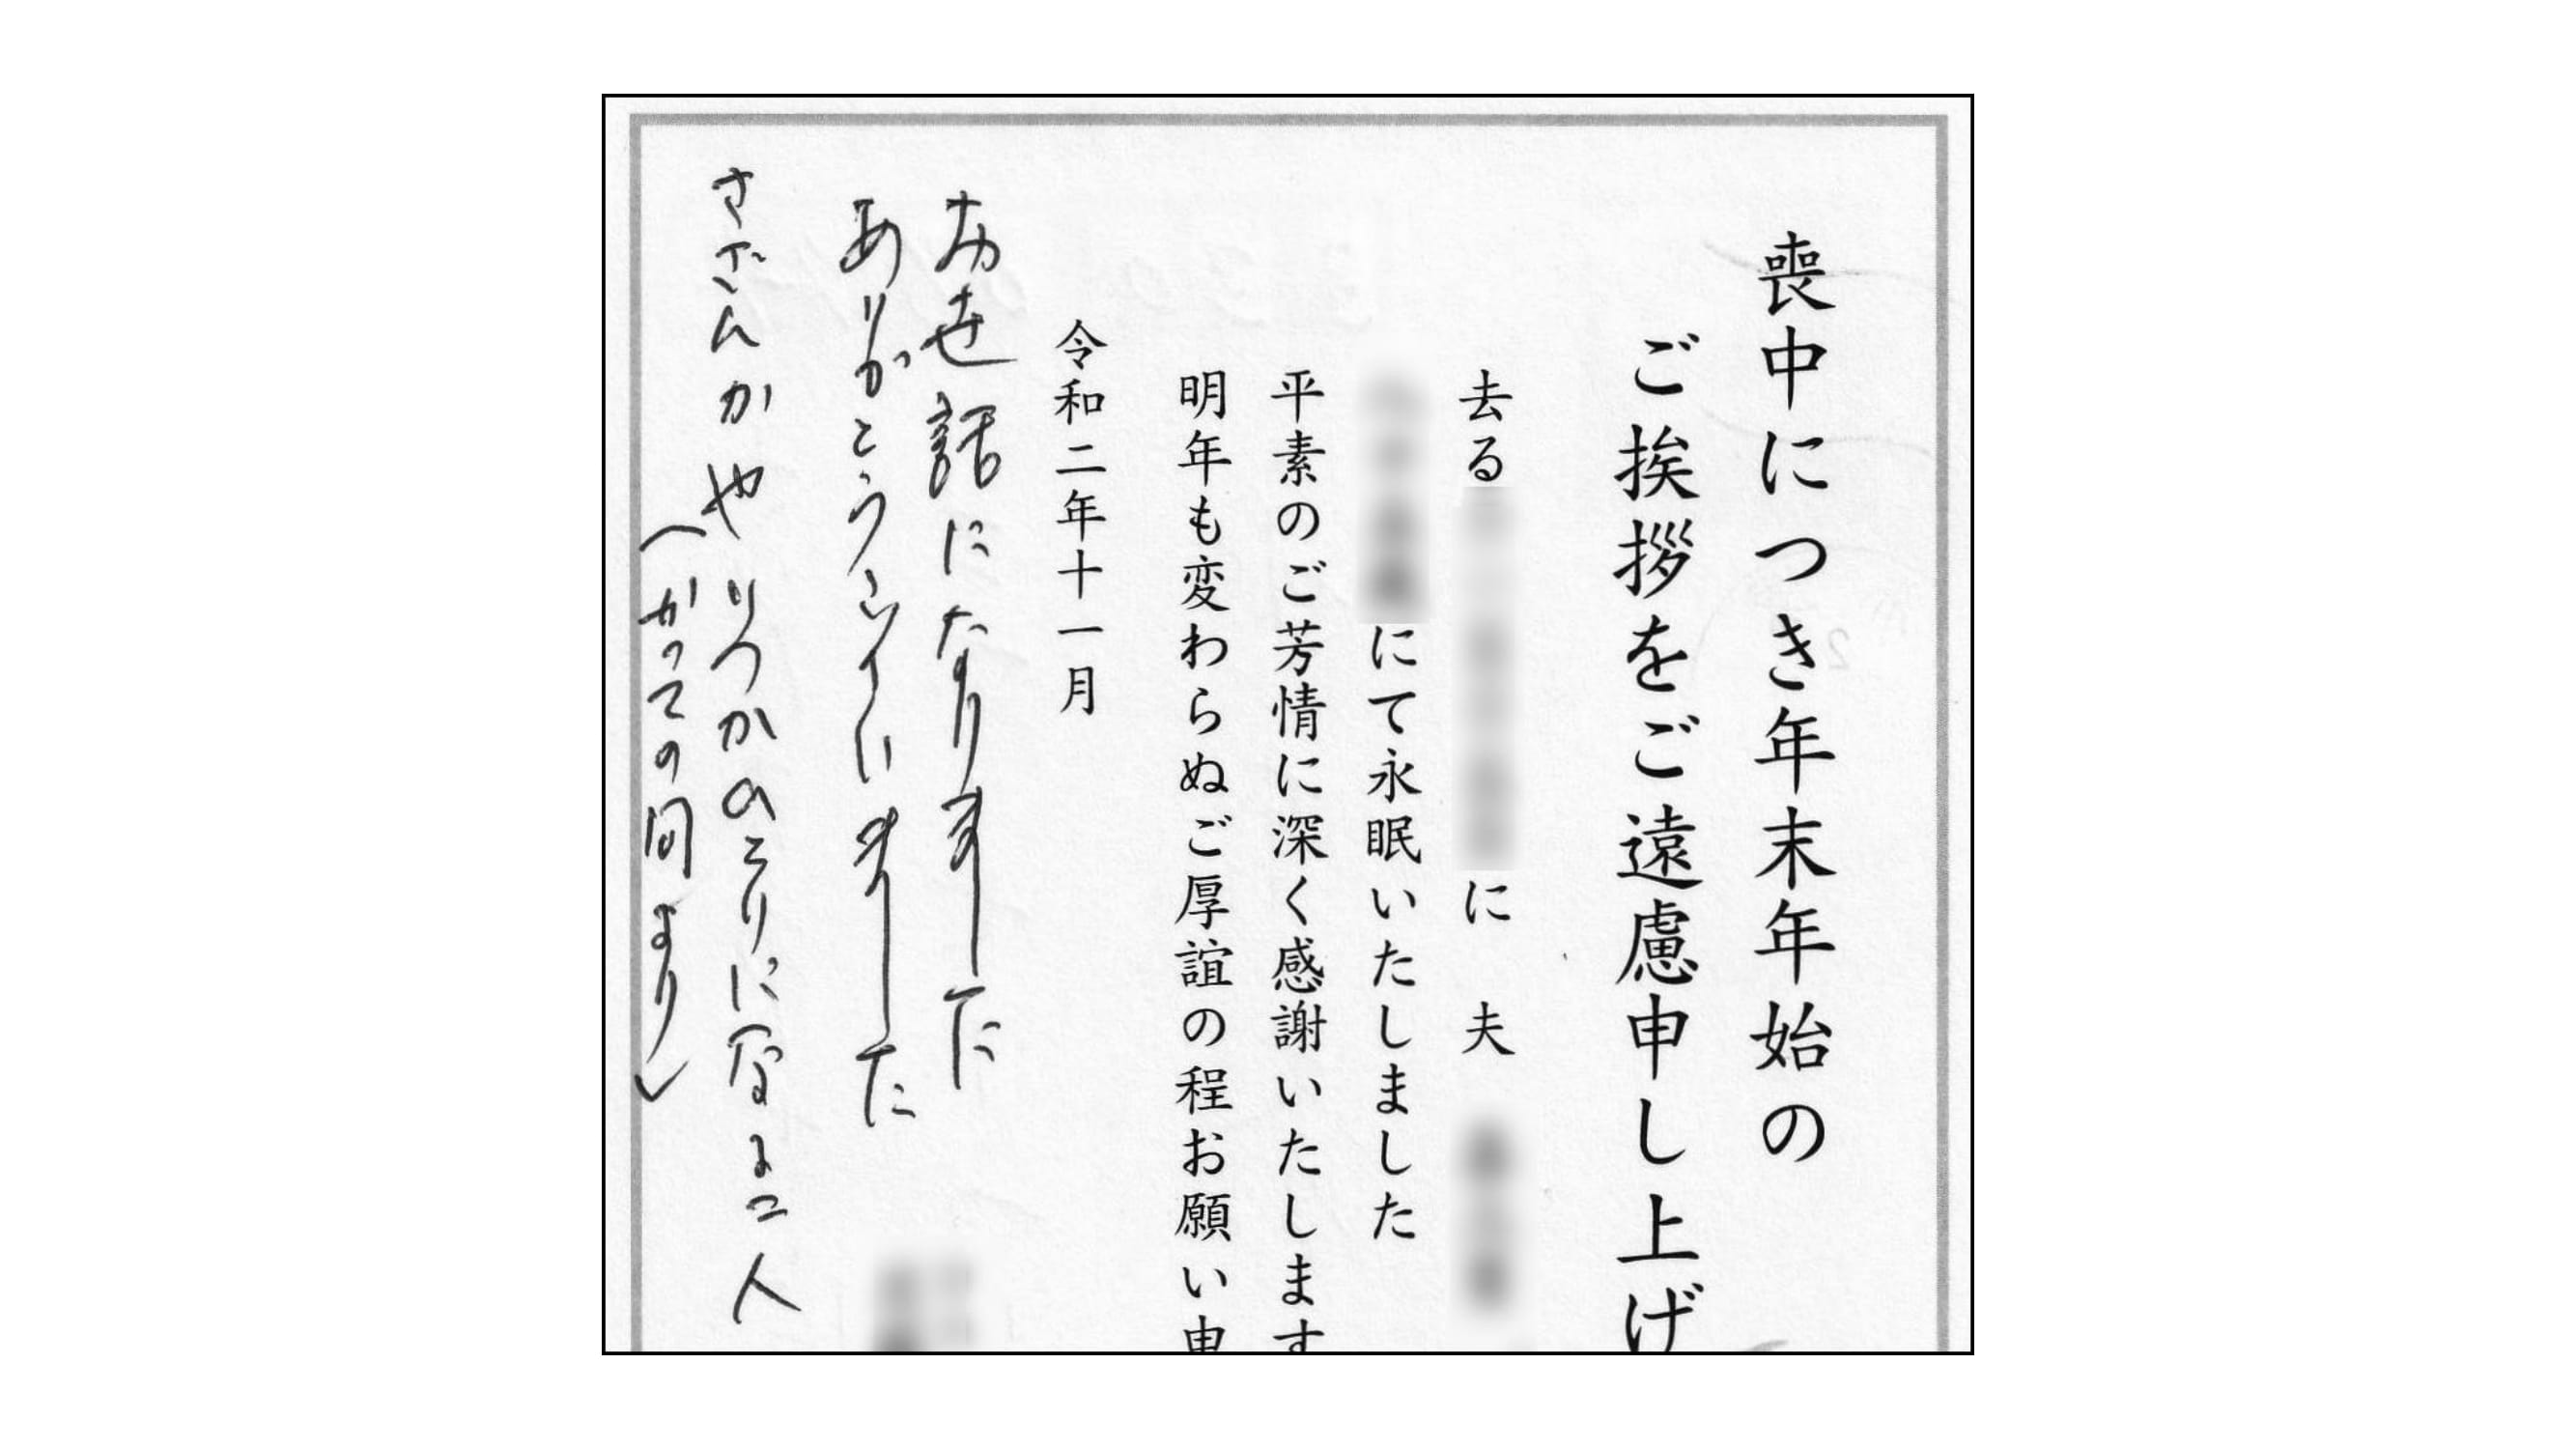 喪中につき年末年始の
ご挨拶をご遠慮申し上げ
去る
に 夫
にて永眠いたしました
平素のご芳情に深く感謝いたします
明年も変わらぬご厚誼の程お願い申
令和二年十一月
お世話になりました
ありがとうございました
さざんかや いつかのこりになる二人
(かっての間より)